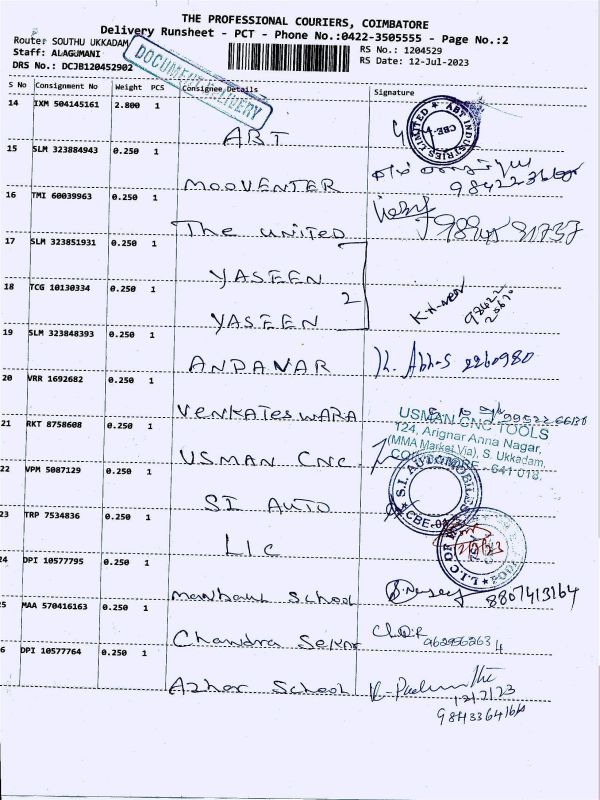 THE PROFESSIONAL COURIERS, COIMBATORE
Delivery Runsheet - PCT - Phone No.:0422-3505555 - Page No.:2
Route: SOUTHU UKKADAM
RS No.: 1204529
Staff: ALAGUMANI
RS Date: 12-Jul-2023
DRS No.: DCJB120452902
DOCUMENT DELIVERY
S No Consignment No Weight PCS Consignee Details Signature
14 IXM 504145161 2.800 1
ABT
ABT INDUSTRIES LIMITED
CBE-
15 SLM 323884943 0.250 1
MOOVENTER
16 TMI 60039963 0.250 1
The UNITED
17 SLM 323851931 0.250 1
YASEEN
18 TCG 10130334 0.250 1
2
YASEEN
19 SLM 323848393 0.250 1
ANDAVAR
2260980
20 VRR 1692682 0.250 1
VENKATESWARA
21 RKT 8758608 0.250 1
USMAN CNC
USMAN CNC TOOLS
124, Arignar Anna Nagar,
(MMA Market Via), S. Ukkadam,
COIMBATORE - 641 018.
22 VPM 5087129 0.250 1
SI AUTO
S.I. AUTOMOBILES
CBE-
23 TRP 7534836 0.250 1
LIC
L.I.C OF
24 DPI 10577795 0.250 1
School
8807413164
25 MAA 570416163 0.250 1
Chandra Sekar
26 DPI 10577764 0.250 1
Azhar School
12/7/23